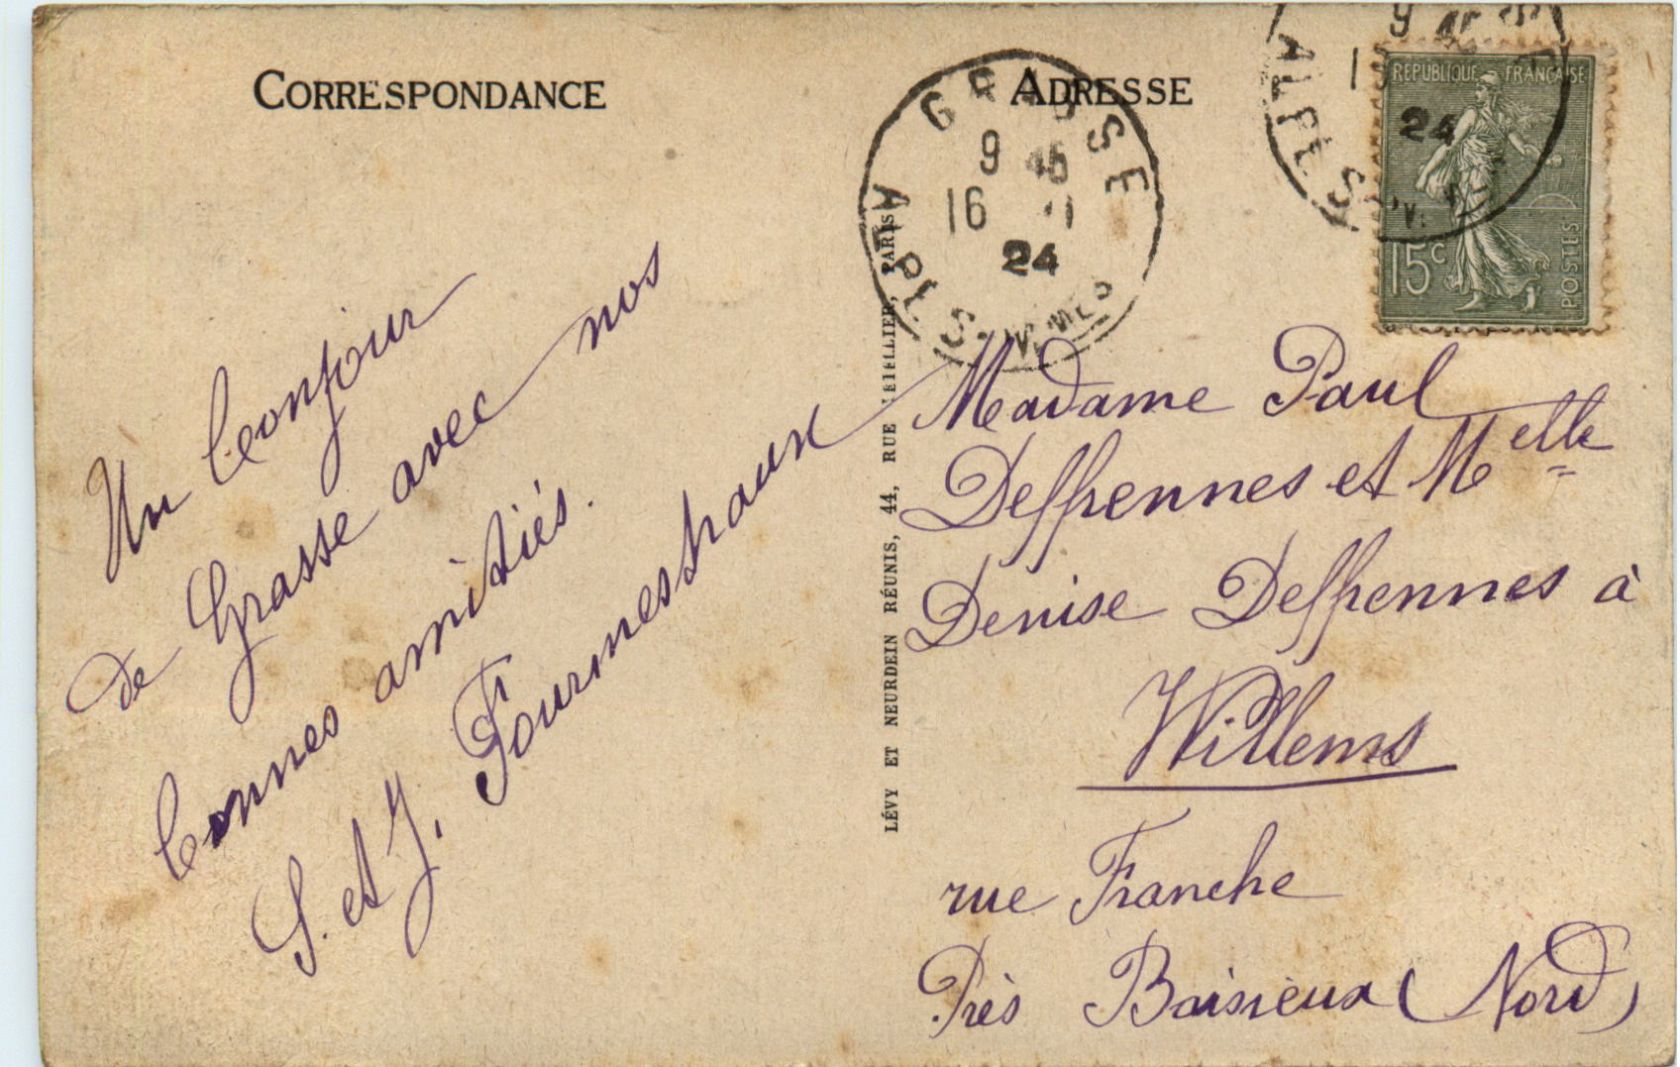 CORRESPONDANCE
Un bonjour
de Grasse avec nos
bonnes amitiés.
S. et J. Fournestraux
LÉVY ET NEURDEIN RÉUNIS, 44, RUE LETELLIER, PARIS
ADRESSE
GRASSE
9 45
16 -1
24
ALPES-
RÉPUBLIQUE FRANÇAISE
15c
POSTES
9 45
24
ALPES
Madame Paul
Deffrennes et Melle
Denise Deffrennes à
Willems
rue Franche
Près Baisieux (Nord)